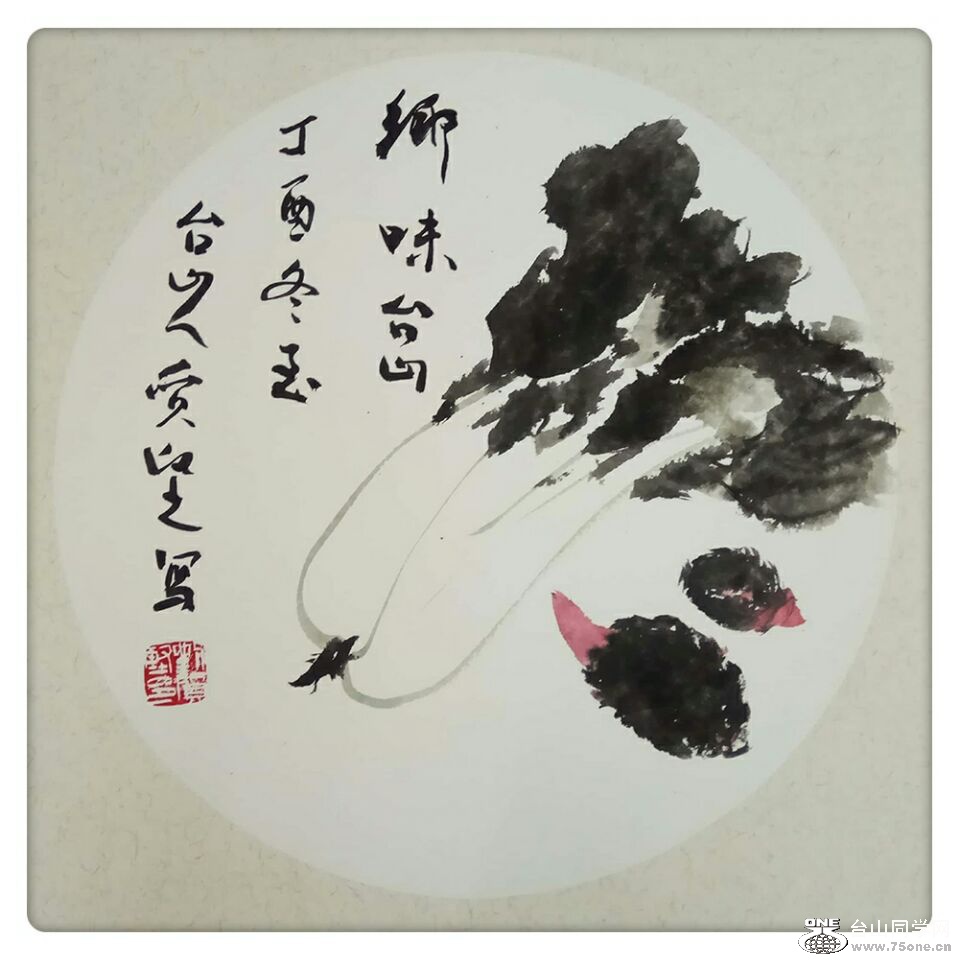 鄉味台山
丁酉冬至
台山人 写
ONE
台山同学网
www.75one.cn